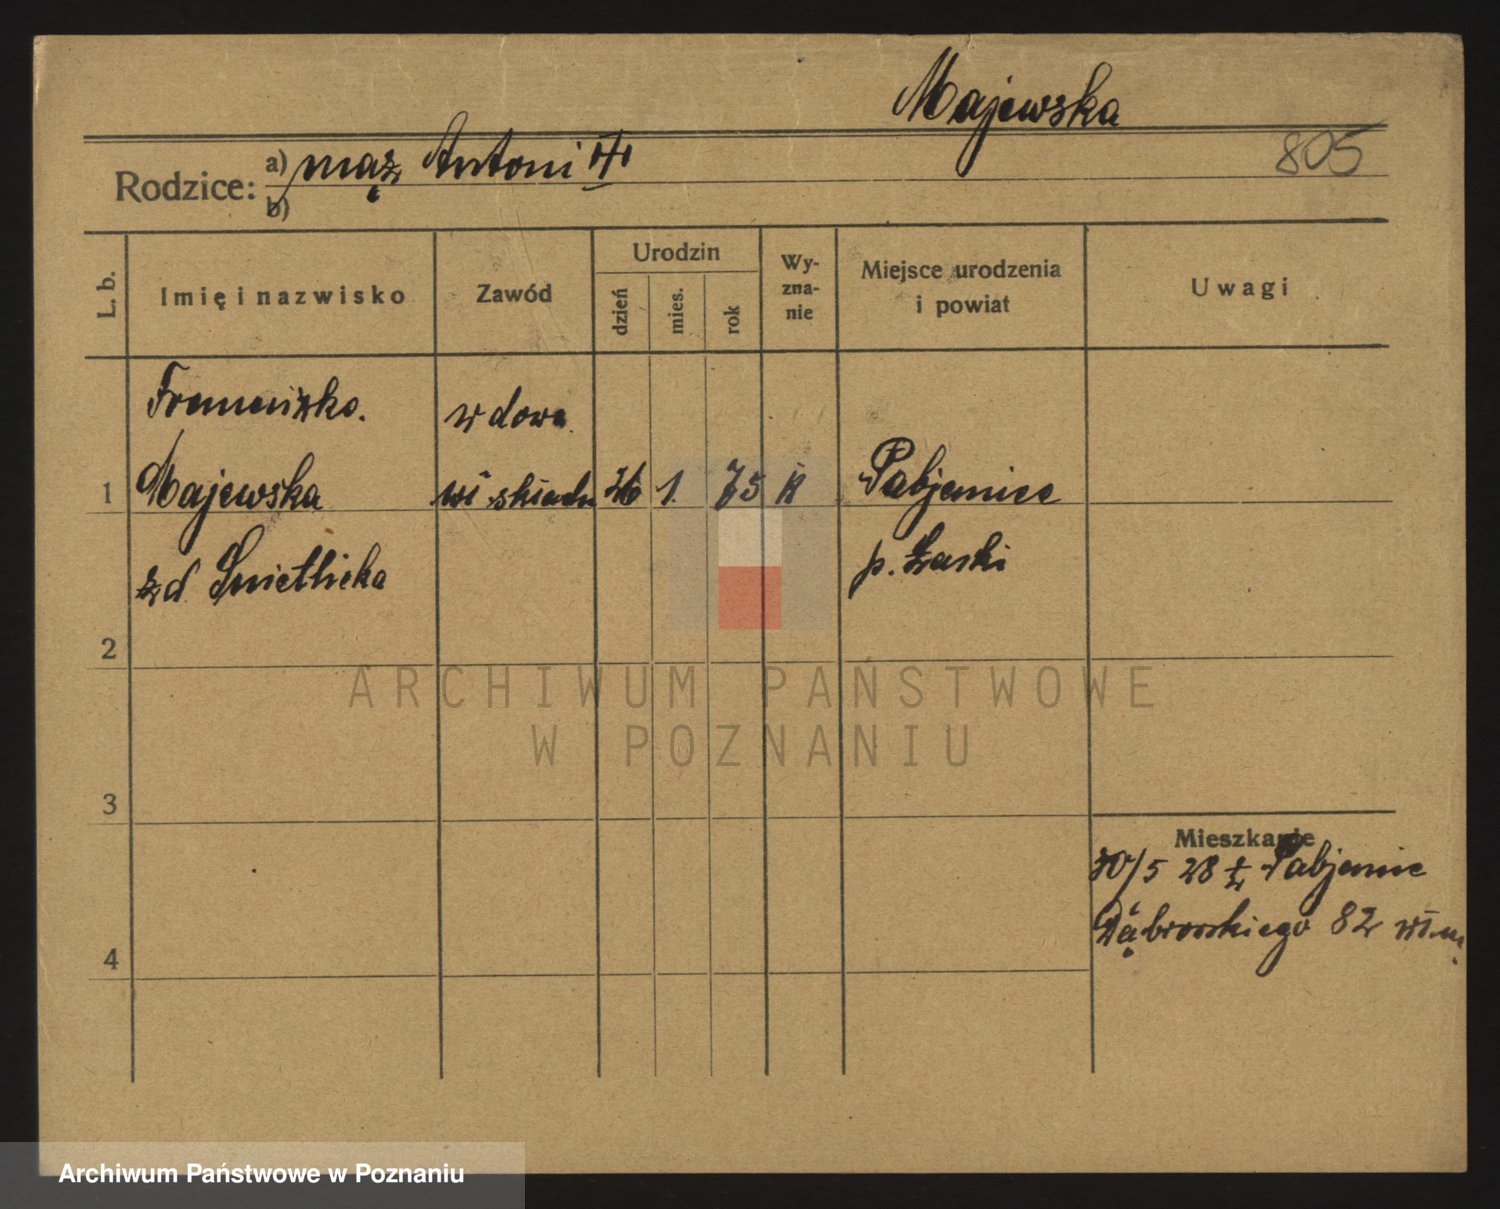 Majewska
805
Rodzice: a) mąż Antoni
b)
L. b.
Imię i nazwisko
Zawód
Urodzin
dzień
mies.
rok
Wy-
zna-
nie
Miejsce urodzenia
i powiat
Uwagi
Franciszka
wdowa
1 Majewska
26 1. 75 k
Pabjanice
zd. Swietlicka
p. Łaski
2
3
4
Mieszkanie
30/5 28 z Pabjanic
Dąbrowskiego 82
ARCHIWUM PAŃSTWOWE
W POZNANIU
Archiwum Państwowe w Poznaniu